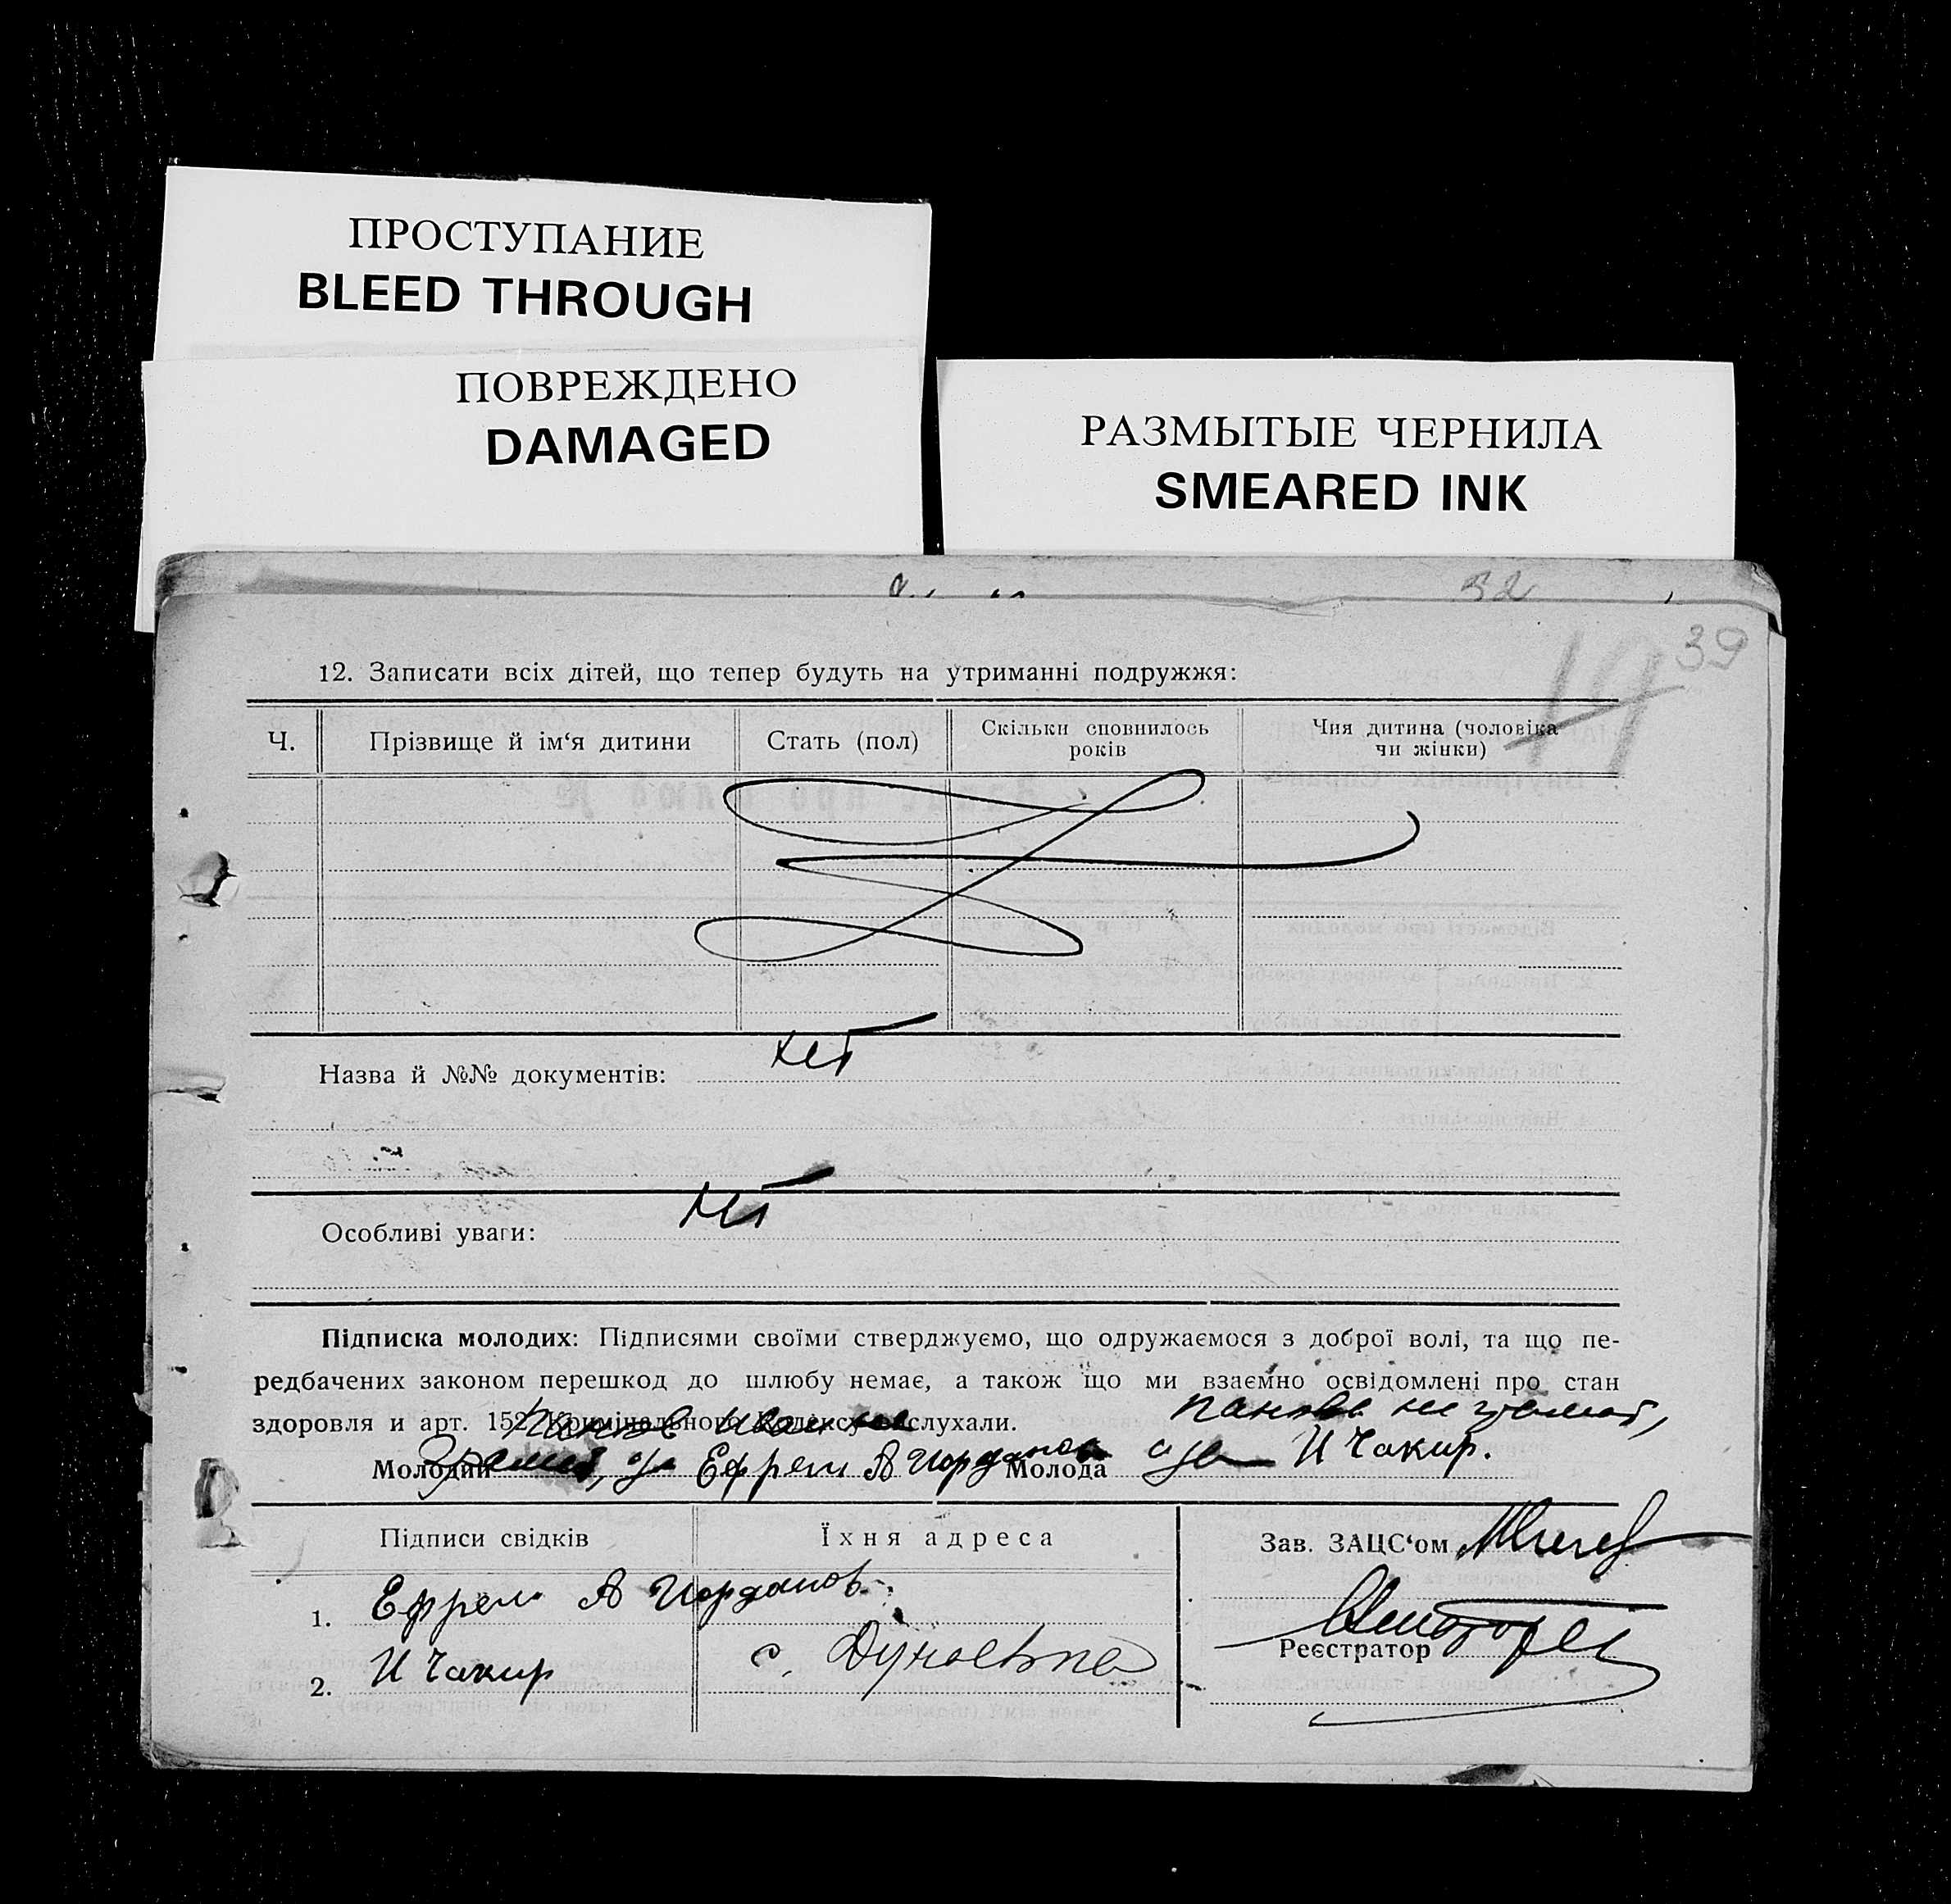 ПРОСТУПАНИЕ
BLEED THROUGH
ПОВРЕЖДЕНО
DAMAGED
РАЗМЫТЫЕ ЧЕРНИЛА
SMEARED INK
32
39
14
12. Записати всіх дітей, що тепер будуть на утриманні подружжя:
Ч. Прізвище й ім‘я дитини Стать (пол) Скільки сповнилось років Чия дитина (чоловіка чи жінки)
Назва й №№ документів: нет
Особливі уваги: нет
Підписка молодих: Підписями своїми стверджуємо, що одружаємося з доброї волі, та що пе-
редбачених законом перешкод до шлюбу немає, а також що ми взаємно освідомлені про стан
здоровля и арт. 152 Кримінального Кодексу вислухали.
Панова неграмот,
Молодий Ефрем А Иорданов Молода И Чакир.
Підписи свідків Їхня адреса Зав. ЗАЦС‘ом
1. Ефрем А Иорданов
2. И Чакир с.
Реєстратор